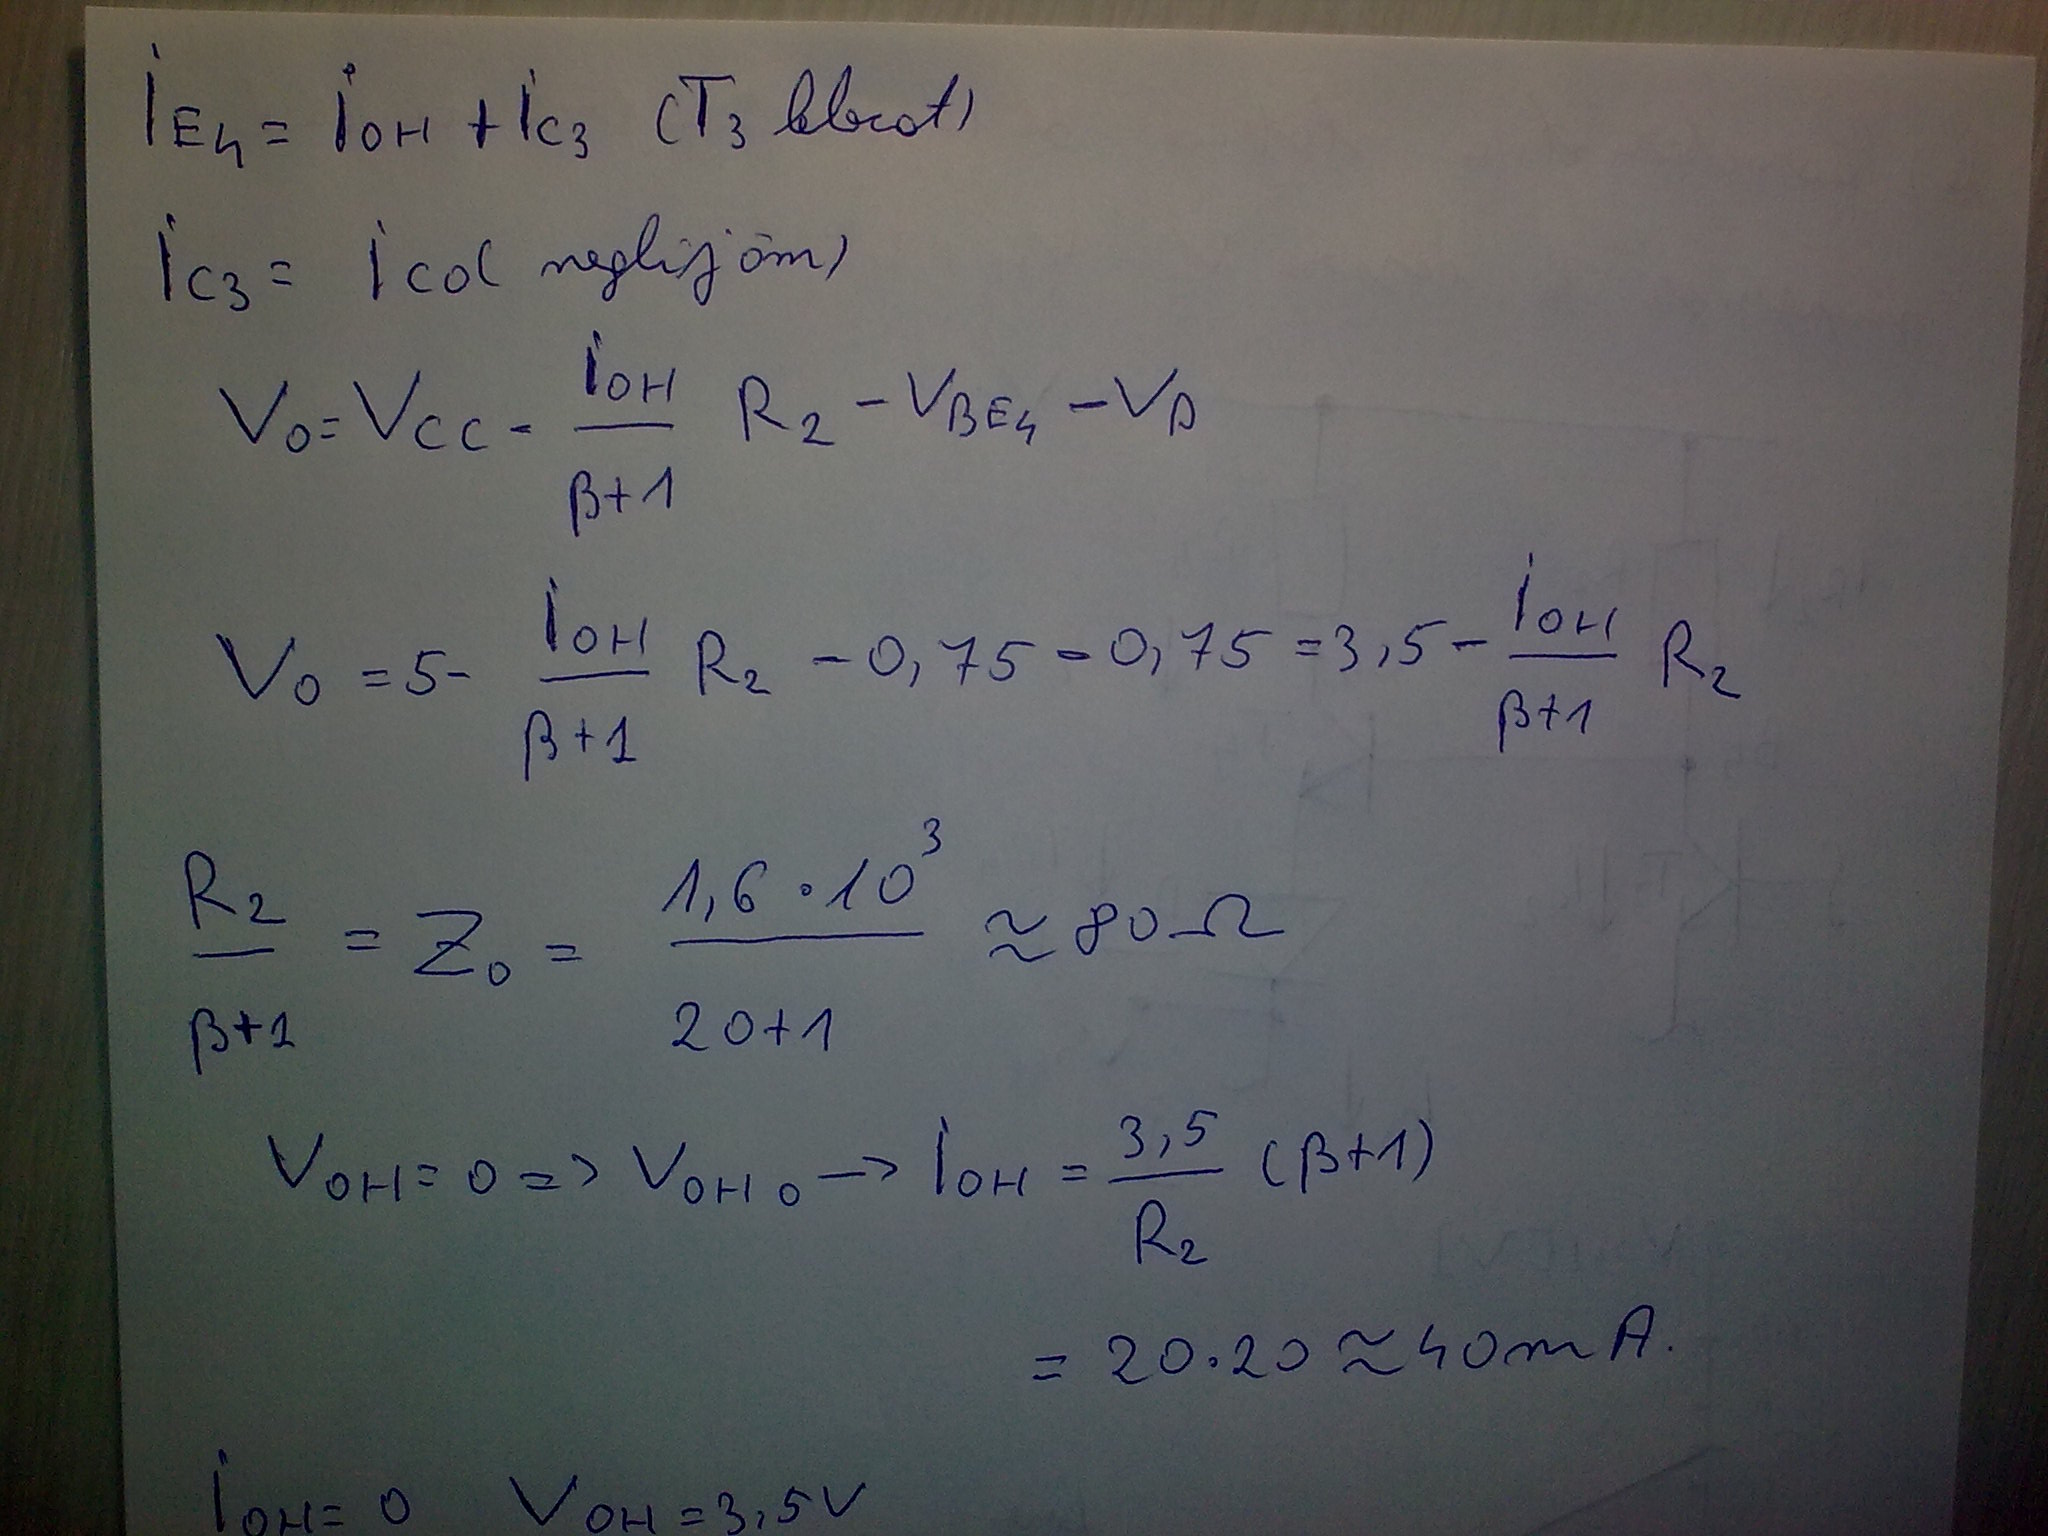 i_E4 = i_OH + i_C3 (T3 blocat)
i_C3 = i_CO (neglijăm)
V_O = V_CC - i_OH/(β+1) R_2 - V_BE4 - V_D
V_O = 5 - i_OH/(β+1) R_2 - 0,75 - 0,75 = 3,5 - i_OH/(β+1) R_2
R_2/(β+1) = Z_0 = 1,6·10^3/(20+1) ≈ 80 Ω
V_OH = 0 => V_OH0 → i_OH = 3,5/R_2 (β+1)
= 20·20 ≈ 40 mA.
i_OH = 0 V_OH = 3,5V